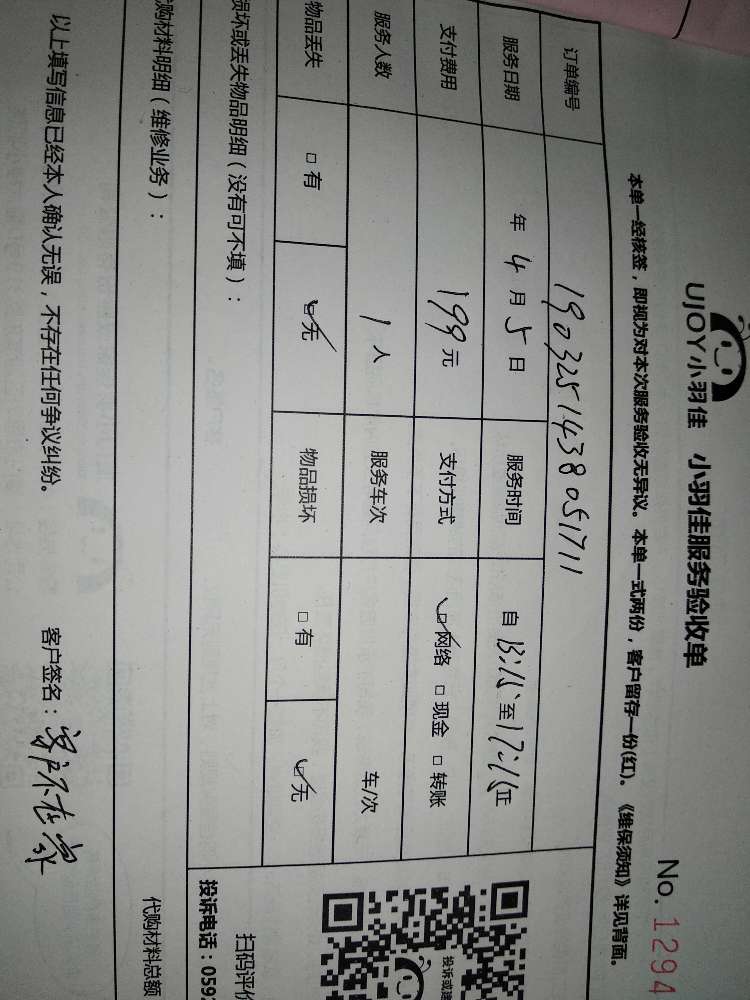 UJOY小羽佳 小羽佳服务验收单
No. 1294
本单一经核签，即视为对本次服务验收无异议。本单一式两份，客户留存一份(红)。《维保须知》详见背面。
订单编号 190325143805171 1
服务日期 年 4 月 5 日 服务时间 自 13:15 至 17:15 正
支付费用 199 元 支付方式 网络 现金 转账
服务人数 1 人 服务车次 车/次
物品丢失 有 无 物品损坏 有 无
损坏或丢失物品明细（没有可不填）：
投诉或建
扫码评价
投诉电话：059
代购材料明细（维修业务）：
代购材料总额
以上填写信息已经本人确认无误，不存在任何争议纠纷。 客户签名：客户不在家